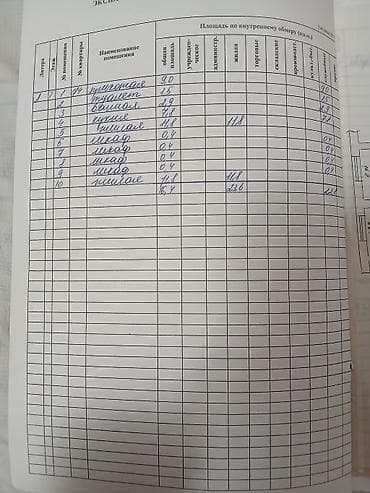 ЭКСПЛ
Площадь по внутреннему обмеру (кв.м.)
Литера
Этаж
№ помещения
№ квартиры
Наименование помещения
общая площадь
учрежденческое
администр.
жилая
торговые
складские
производст.
1 прихожая 9.0
2 туалет 1.5 1.5
3 ванная 2.9
4 кухня 7.8
5 жилая 11.8 11.8
6 шкаф 0.4 0.4
7 шкаф 0.4 0.4
8 шкаф 0.4 0.4
9 шкаф 0.4 0.4
10 жилая 11.8 11.8
23.6